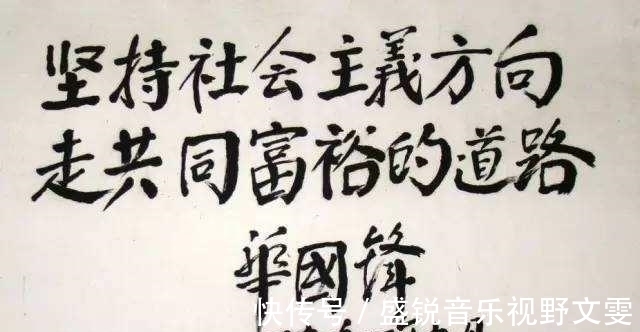 坚持社会主義方向
走共同富裕的道路
華國锋
快传号/盛锐音乐视野文雯